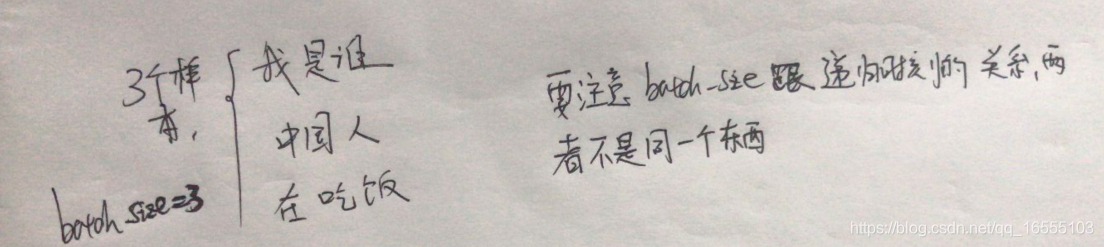 3个样
本,
batch size=3
我是谁
中国人
在吃饭
要注意 batch-size 跟 递归时刻的 关系,两
者不是同一个东西
https://blog.csdn.net/qq_16555103